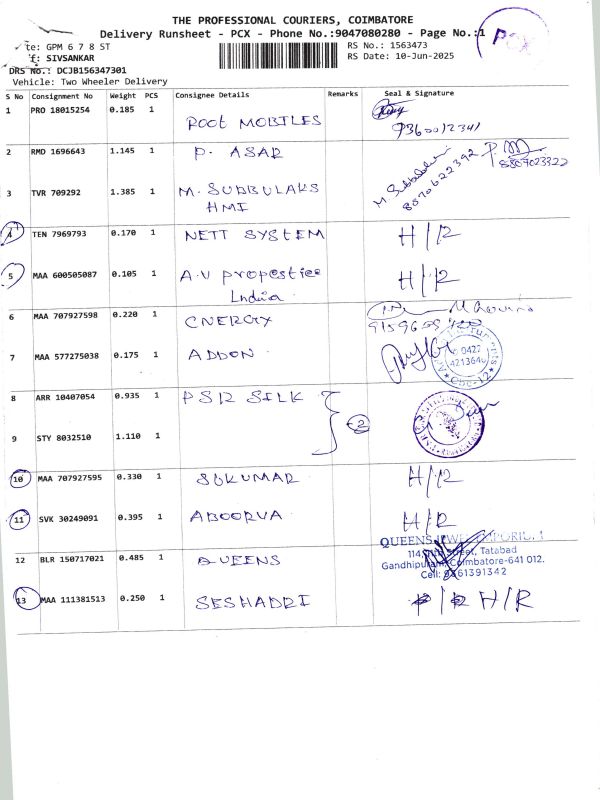 THE PROFESSIONAL COURIERS, COIMBATORE
Delivery Runsheet - PCX - Phone No.:9047080280 - Page No.:1
PCX
te: GPM 6 7 8 ST
RS No.: 1563473
f: SIVSANKAR
RS Date: 10-Jun-2025
DRS No.: DCJB156347301
Vehicle: Two Wheeler Delivery
S No Consignment No Weight PCS Consignee Details Remarks Seal & Signature
1 PRO 18015254 0.185 1 ROOt MOBILES
9360012341
2 RMD 1696643 1.145 1 P. ASAR
8807023322
3 TVR 709292 1.385 1 M. SUBBULAKS
HMI
M. Subbulakshmi
8870622392
4 TEN 7969793 0.170 1 NETT SYSTEM H/R
5 MAA 600505087 0.105 1 A.V properties
India
H/R
6 MAA 707927598 0.220 1 ENERGY
7 MAA 577275038 0.175 1 ADDON
0422
4213640
8 ARR 10407054 0.935 1 PSR SILK
2
9 STY 8032510 1.110 1
10 MAA 707927595 0.330 1 SUKUMAR H/R
11 SVK 30249091 0.395 1 ABOORVA H/R
12 BLR 150717021 0.485 1 QUEENS
QUEENS JEWEL EMPORIUM
114, Street, Tatabad
Gandhipuram, Coimbatore-641 012.
Cell: 9361391342
13 MAA 111381513 0.250 1 SESHADRI H/R